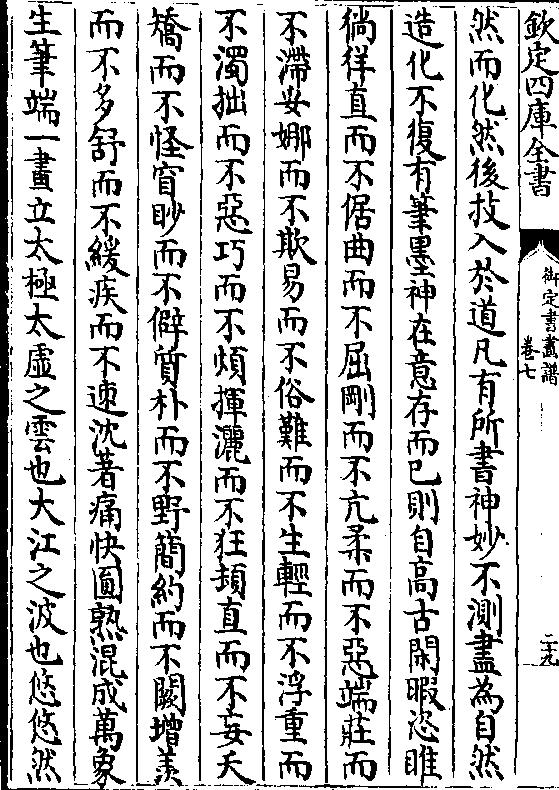 欽定四庫全書
御定書畫譜
卷七
二十九
然而化然後技入於道凡有所書神妙不測盡為自然
造化不復有筆墨神在意存而已則自高古閒暇恣睢
徜徉直而不倨曲而不屈剛而不亢柔而不惡端莊而
不滯妥娜而不欺易而不俗難而不生輕而不浮重而
不濁拙而不惡巧而不煩揮灑而不狂頓直而不妄夭
矯而不怪窅眇而不僻質朴而不野簡約而不闕增羨
而不多舒而不緩疾而不速沈著痛快圓熟混成萬象
生筆端一畫立太極太虛之雲也大江之波也悠悠然